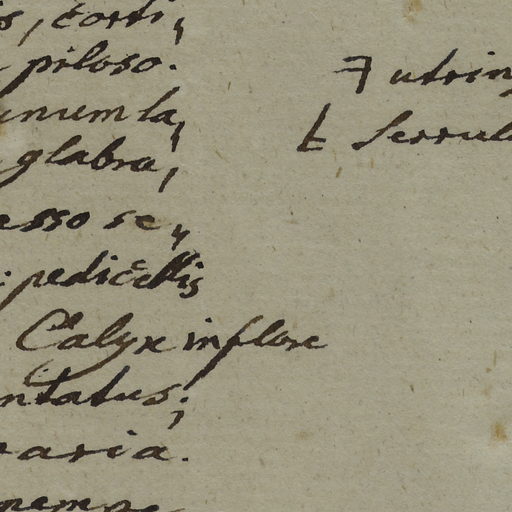 is, corti,,
piloso.
inum la,,
glabra,
esso se,,
: pedicellis
Calyx in flore
ntatus;
raria.
nempe
Ŧ utrin
t serrul